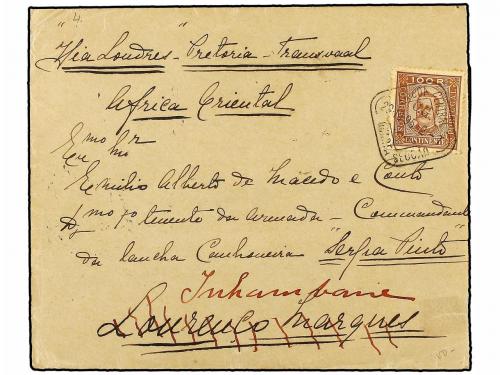 4.
"Via Londres" - Pretoria - Transvaal
Africa Oriental
Exmo Snr
Emilio Alberto de Macedo e Couto
Dgmo 1º tenente da armada - Commandante
da lancha Canhoneira "Serpa Pinto"
Inhambane
Lourenço Marques
100 R